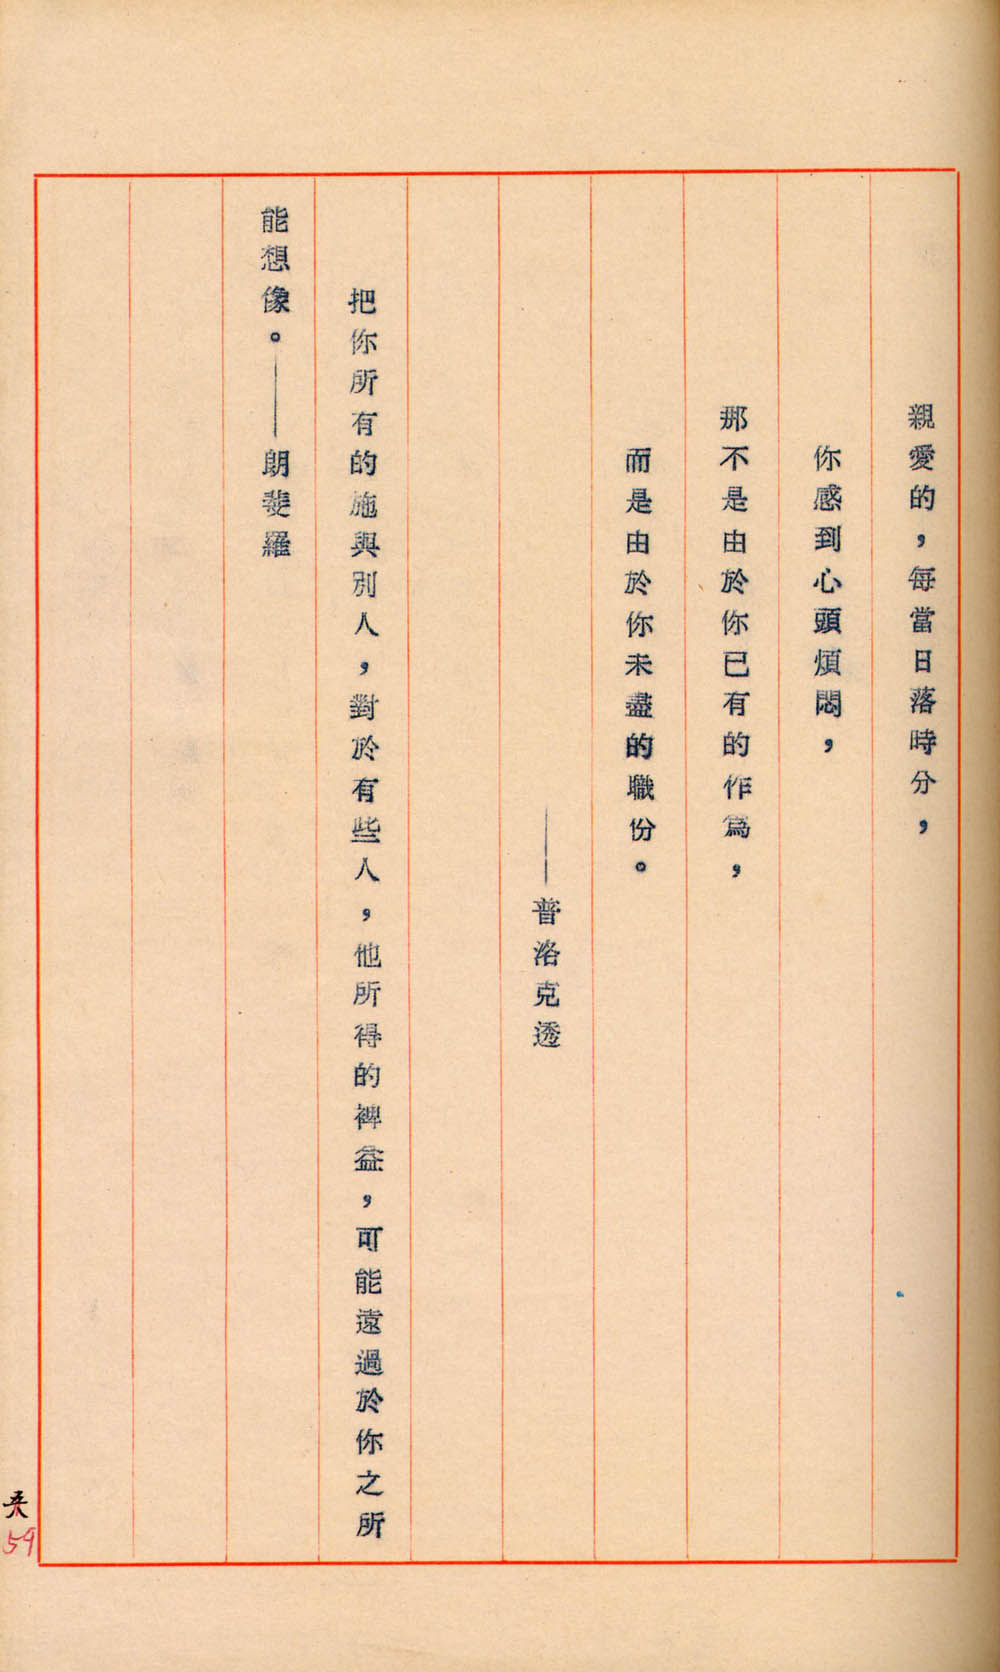 親愛的，每當日落時分，
你感到心頭煩悶，
那不是由於你已有的作為，
而是由於你未盡的職份。
——普洛克透
把你所有的施與別人，對於有些人，他所得的裨益，可能遠過於你之所
能想像。——朗斐羅
59